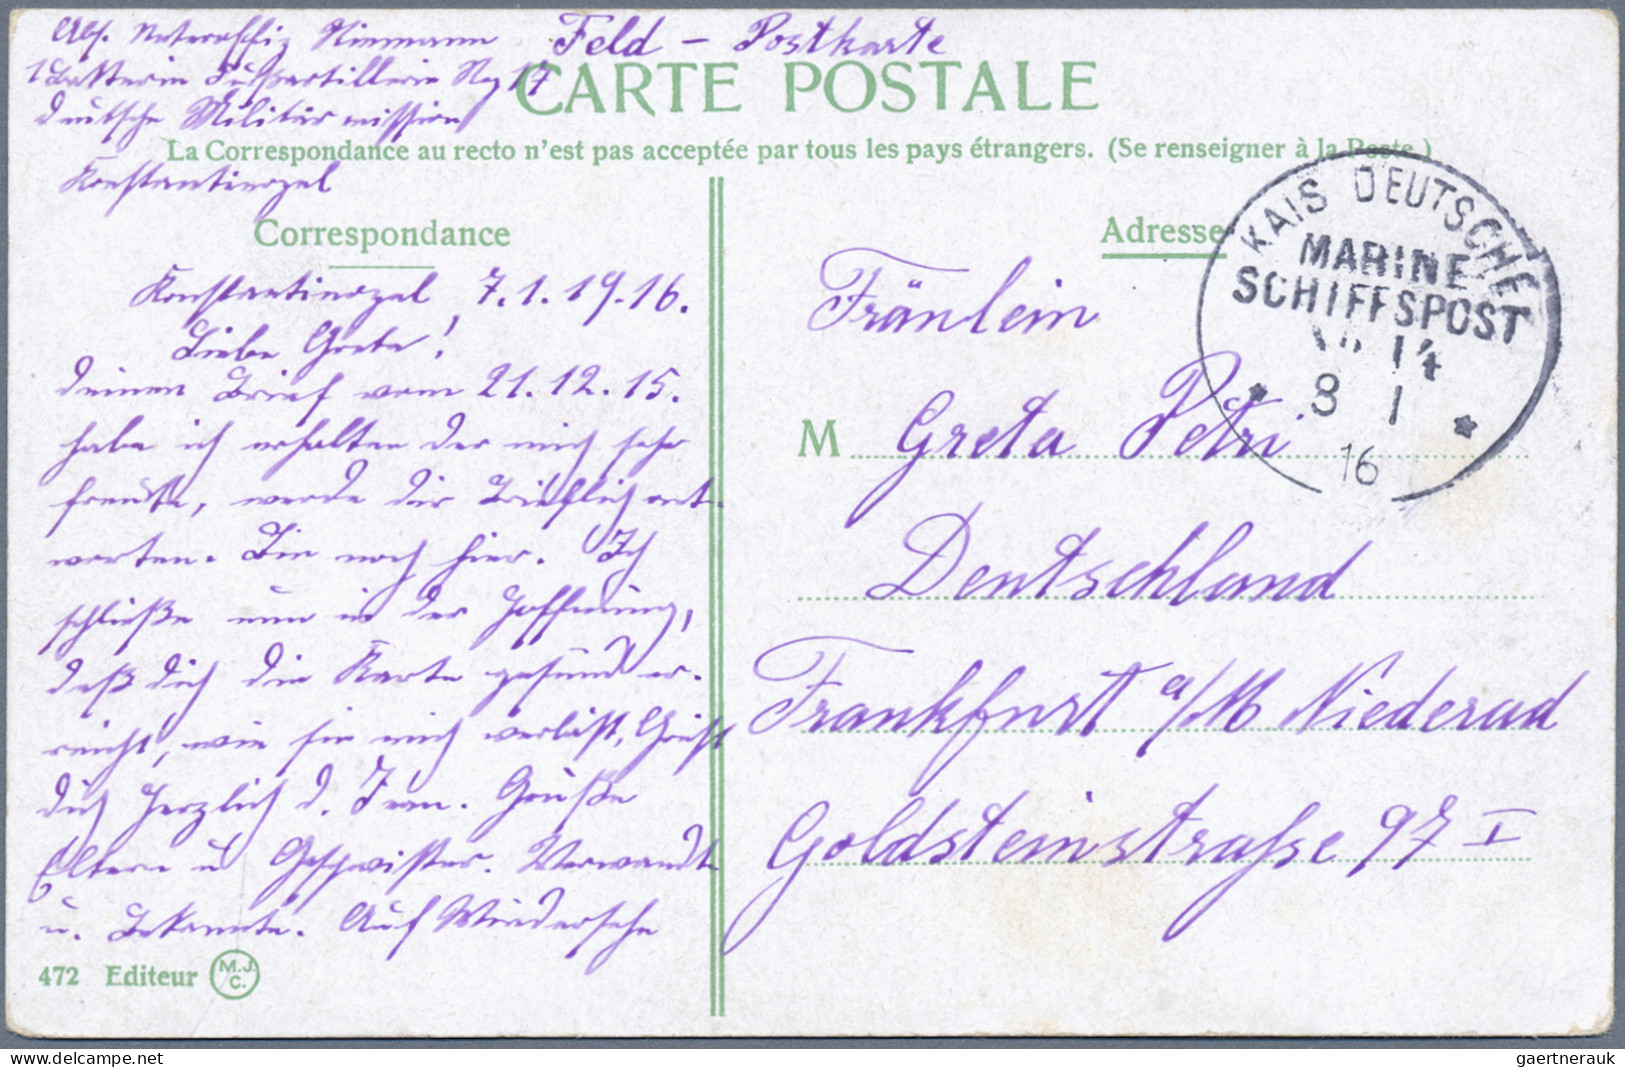 Abs. Unteroffiz Niemann
1 Batterie Fußartillerie Reg 17
deutsche Militärmission
Konstantinopel
Feld - Postkarte
CARTE POSTALE
La Correspondance au recto n'est pas acceptée par tous les pays étrangers. (Se renseigner à la Poste.)
Correspondance
Konstantinopel, 7.1.19.16.
Liebe Greta!
deinen Brief vom 21.12.15.
habe ich erhalten der mich sehr
freute, werde dir brieflich ant-
worten. Bin noch hier. Ich
schließe nun in der Hoffnung,
daß dich die Karte gesund er-
reicht, wie sie mich verläßt, Grüßt
dich herzlich d. Fran. Grüße
Eltern u Geschwister. Verwandte
u. Bekannte. Auf Wiedersehn
472 Editeur M.J.C.
Adresse
KAIS DEUTSCHE
MARINE
SCHIFFSPOST
No 14
8 1
16
Fräulein
M Greta Petri
Deutschland
Frankfurt a/M Niederad
Goldsteinstraße 97 I
www.delcampe.net
gaertnerauk